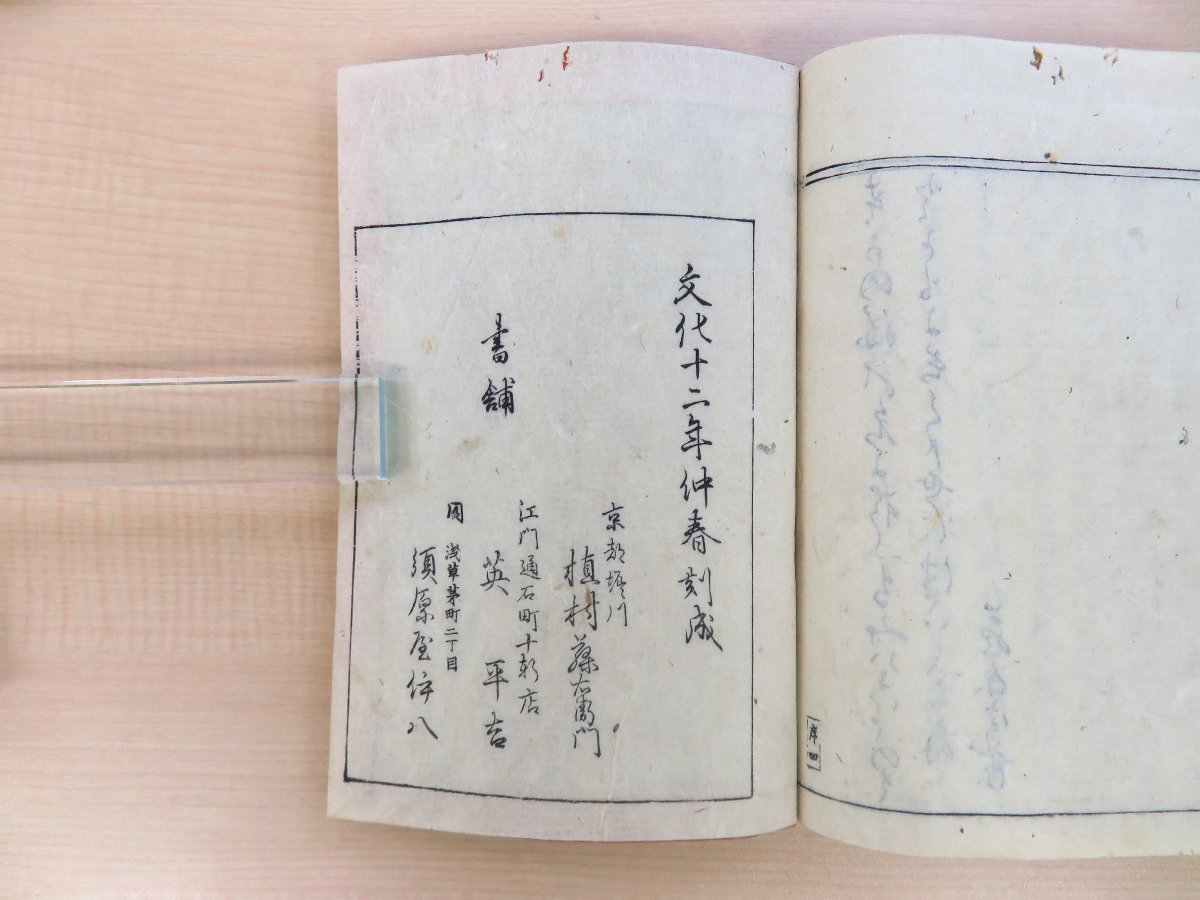 序四
文化十二年仲春刻成
京都堀川
植村藤右衛門
江戸通石町十軒店
書舗
英平吉
同浅草茅町二丁目
須原屋伊八